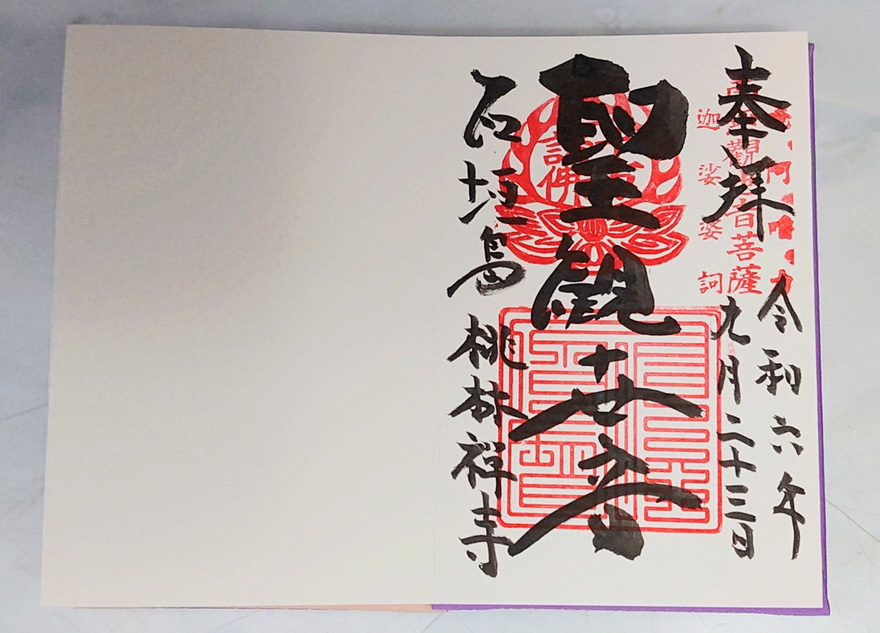 奉拝
令和六年
九月二十三日
觀世音菩薩
迦娑婆訶
聖観世音
石垣島 桃林禅寺